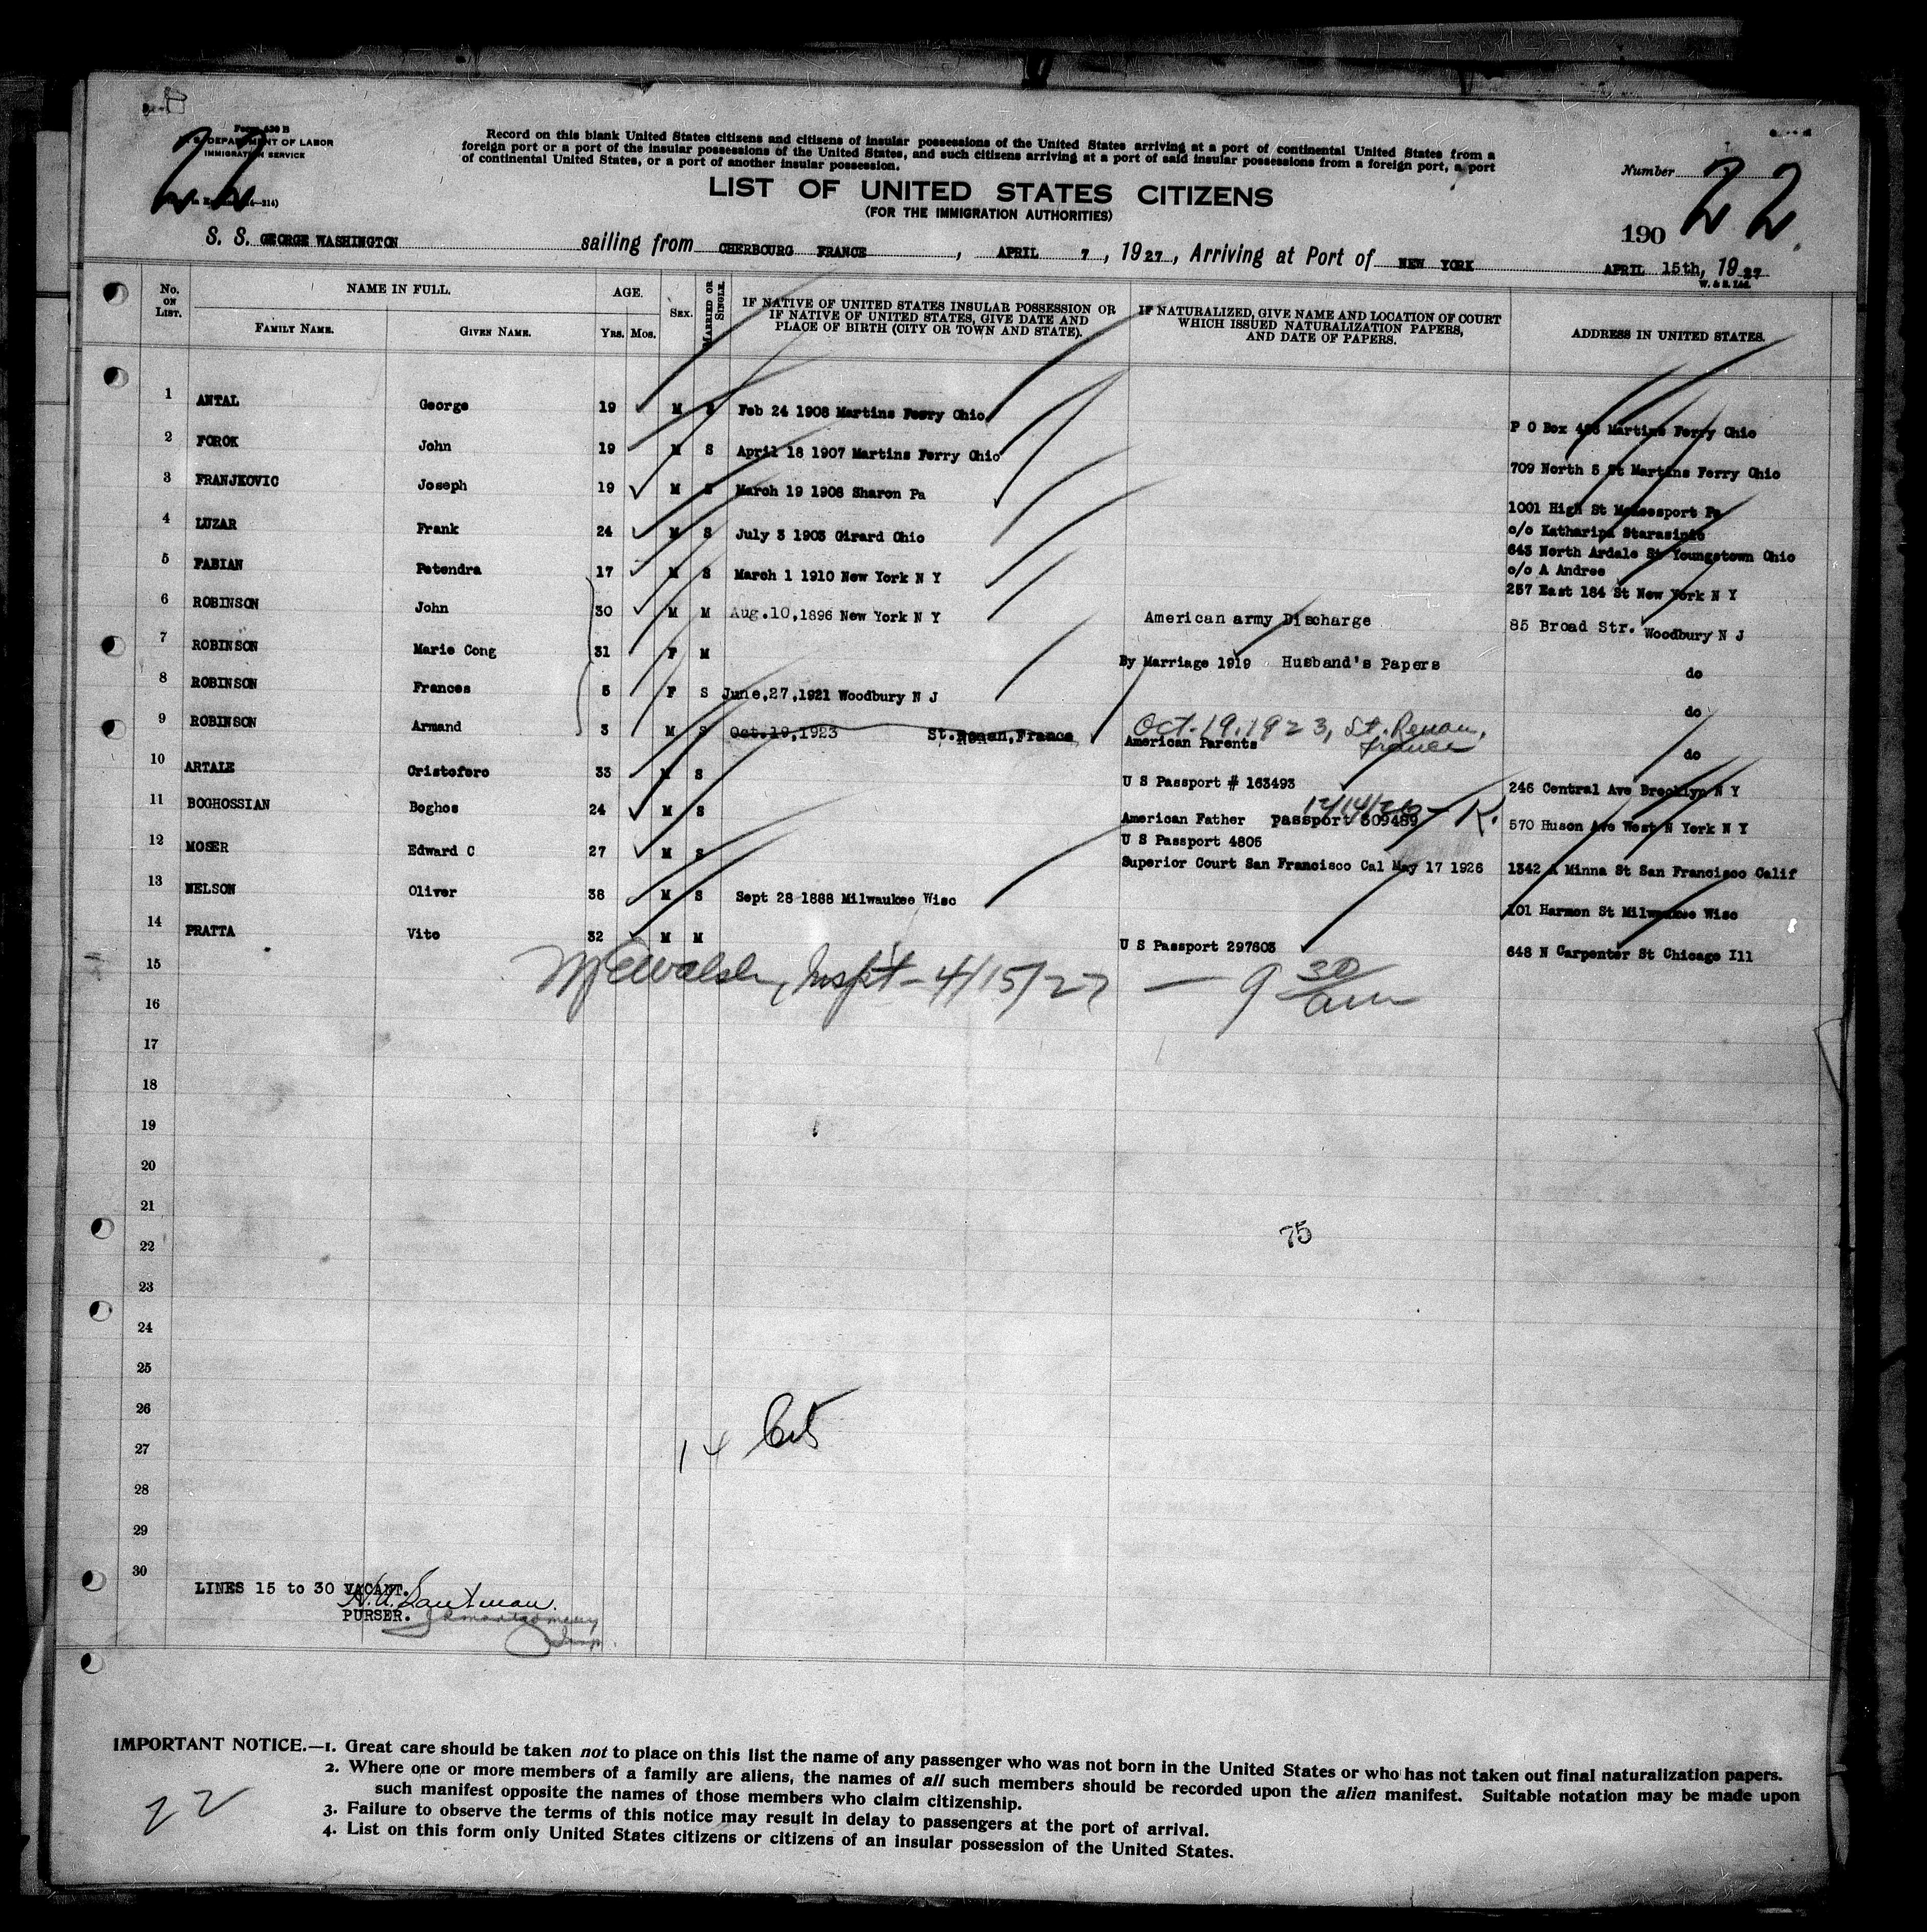 22
Form 630 B
DEPARTMENT OF LABOR
IMMIGRATION SERVICE
Record on this blank United States citizens and citizens of insular possessions of the United States arriving at a port of continental United States from a
foreign port or a port of the insular possessions of the United States, and such citizens arriving at a port of said insular possessions from a foreign port, a port
of continental United States, or a port of another insular possession.
LIST OF UNITED STATES CITIZENS
(FOR THE IMMIGRATION AUTHORITIES)
Number 22
190
S. S. GEORGE WASHINGTON sailing from CHERBOURG FRANCE, APRIL 7, 1927, Arriving at Port of NEW YORK APRIL 15th, 1927
No. ON LIST. NAME IN FULL. FAMILY NAME. GIVEN NAME. AGE. YRS. MOS. SEX. MARRIED OR SINGLE. IF NATIVE OF UNITED STATES INSULAR POSSESSION OR IF NATIVE OF UNITED STATES, GIVE DATE AND PLACE OF BIRTH (CITY OR TOWN AND STATE). IF NATURALIZED, GIVE NAME AND LOCATION OF COURT WHICH ISSUED NATURALIZATION PAPERS, AND DATE OF PAPERS. ADDRESS IN UNITED STATES.
1 ANTAL George 19 M S Feb 24 1908 Martins Ferry Ohio P O Box Martins Ferry Ohio
2 FOROK John 19 M S April 18 1907 Martins Ferry Ohio 709 North 5 St Martins Ferry Ohio
3 FRANJKOVIC Joseph 19 M S March 19 1908 Sharon Pa 1001 High St McKeesport Pa
c/o Katharina
4 LUZAR Frank 24 M S July 3 1903 Girard Ohio 643 North Ardale St Youngstown Ohio
c/o A Andree
5 FABIAN Petendra 17 M S March 1 1910 New York N Y 257 East 184 St New York N Y
6 ROBINSON John 30 M M Aug.10,1896 New York N Y American army Discharge 85 Broad Str. Woodbury N J
7 ROBINSON Marie Cong 31 F M By Marriage 1919 Husband's Papers do
8 ROBINSON Frances 5 F S June,27,1921 Woodbury N J do
9 ROBINSON Armand 3 M S Oct.19,1923 St.Renan,France Oct. 19. 1923, St. Renan, France
American Parents do
10 ARTALE Cristofero 33 M S U S Passport # 163493 246 Central Ave Brooklyn N Y
12/14/26 - K.
11 BOGHOSSIAN Boghos 24 M S American Father passport 309489 570 Huson Ave West N York N Y
U S Passport 4805
12 MOSER Edward C 27 M S Superior Court San Francisco Cal May 17 1926 1342 A Minna St San Francisco Calif
13 NELSON Oliver 38 M S Sept 28 1888 Milwaukee Wisc 101 Harmon St Milwaukee Wisc
14 PRATTA Vito 32 M M U S Passport 297603 648 N Carpenter St Chicago Ill
15
Walsh, Insp't - 4/15/27 - 9 30 am
16
17
18
19
20
21
75
22
23
24
25
26
14 Cit
27
28
29
30
LINES 15 to 30 VACANT.
PURSER.
IMPORTANT NOTICE.—1. Great care should be taken not to place on this list the name of any passenger who was not born in the United States or who has not taken out final naturalization papers.
2. Where one or more members of a family are aliens, the names of all such members should be recorded upon the alien manifest. Suitable notation may be made upon
such manifest opposite the names of those members who claim citizenship.
3. Failure to observe the terms of this notice may result in delay to passengers at the port of arrival.
4. List on this form only United States citizens or citizens of an insular possession of the United States.
22